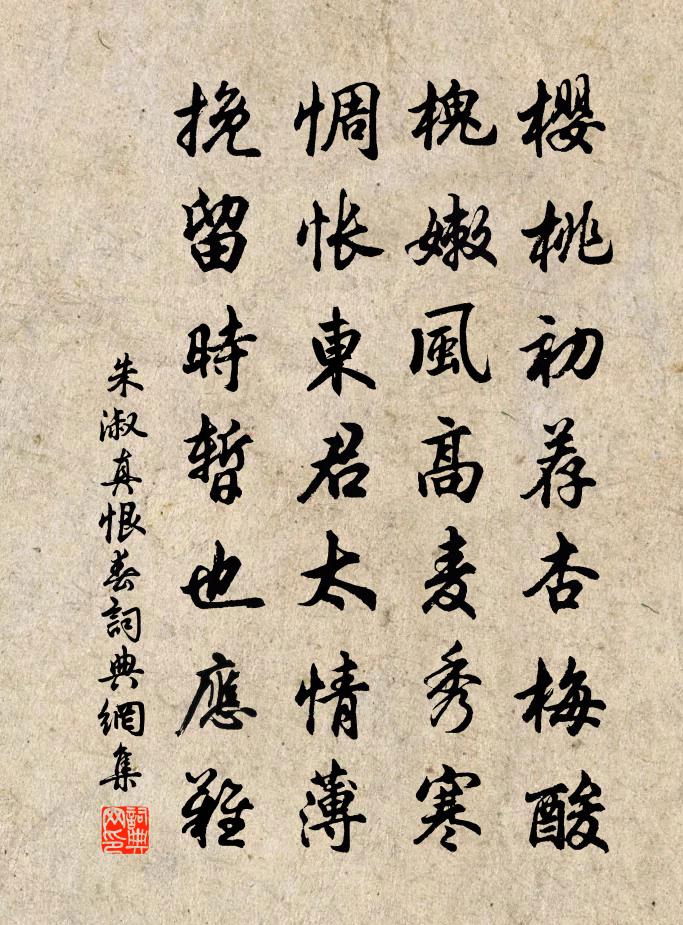 櫻桃初荐杏梅酸
槐嫩風高麦秀寒
惆怅東君太情薄
挽留時暫也應難
朱淑真恨春詞典網集
詞典网印